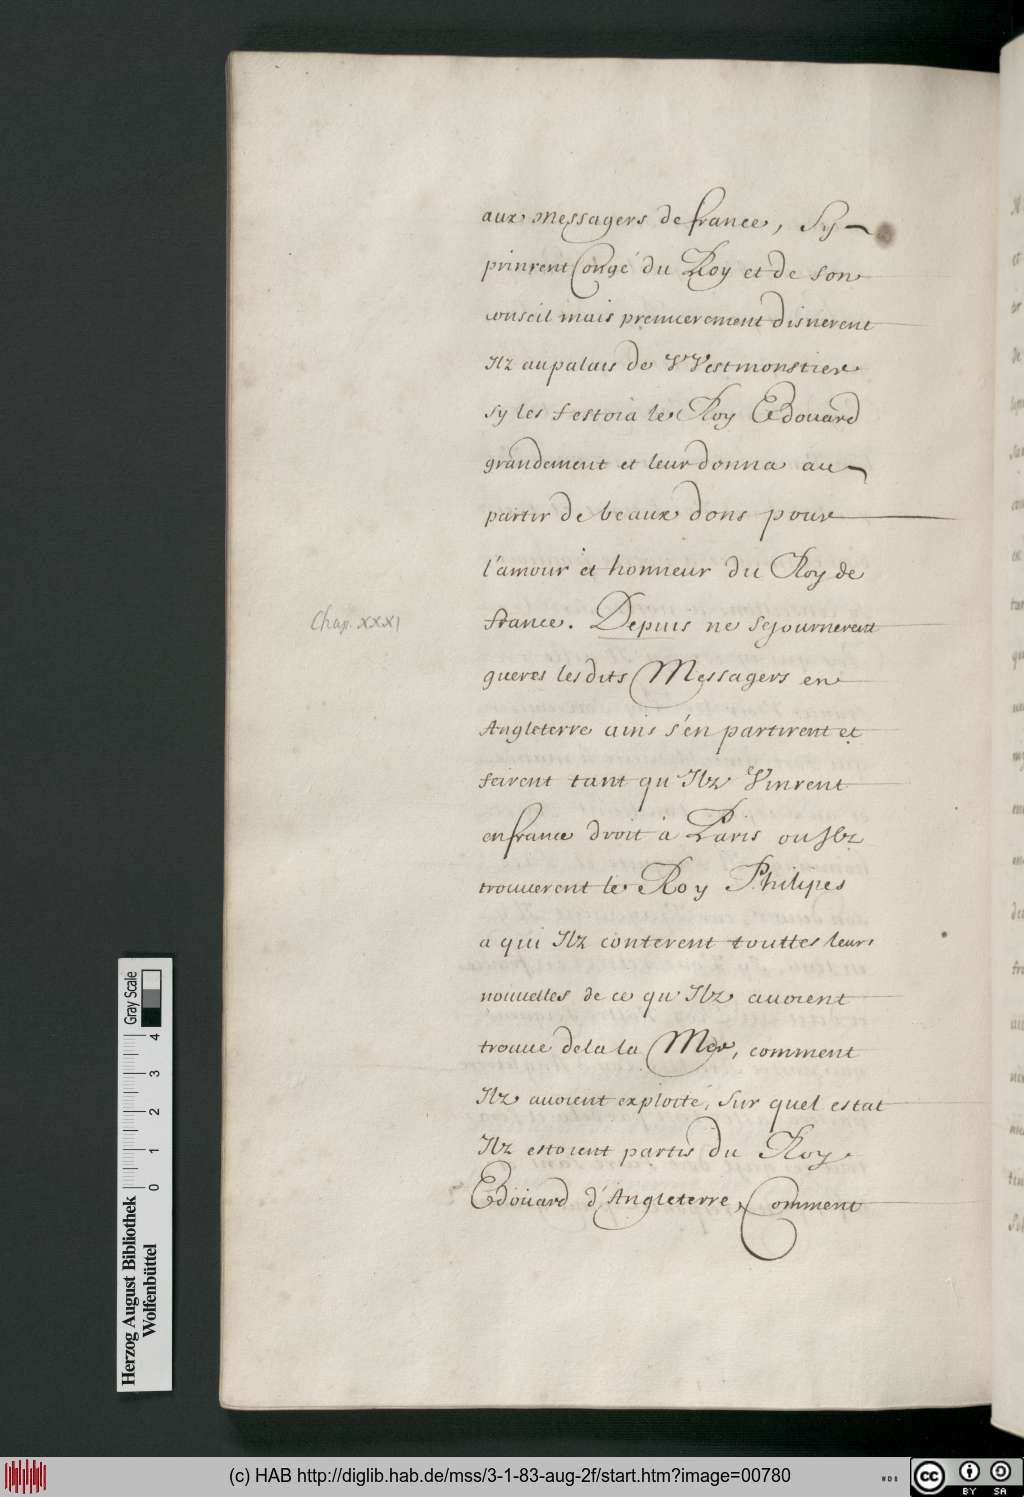 aux messagers de france, Sy
prinrent Congé du Roy et de son
conseil mais premierement disnerent
Ilz au palais de VVestmonstier
sy les festoia le Roy Edouard
grandement et leur donna au
partir de beaux dons pour
l'amour et honneur du Roy de
france. Depuis ne sejournerent
Chap. XXXI
gueres les dits Messagers en
Angleterre ains s'en partirent et
feirent tant qu'Ilz Vinrent
en france droit à Paris ou Ilz
trouverent le Roy Philipes
a qui Ilz conterent touttes leurs
nouvelles de ce qu'Ilz avoient
trouve dela la Mer, comment
Ilz avoient exploité, sur quel estat
Ilz estoient partis du Roy
Edoüard d'Angleterre, Comment
Herzog August Bibliothek
Wolfenbüttel
0 1 2 3 4
Gray Scale
(c) HAB http://diglib.hab.de/mss/3-1-83-aug-2f/start.htm?image=00780
WDB
cc BY SA